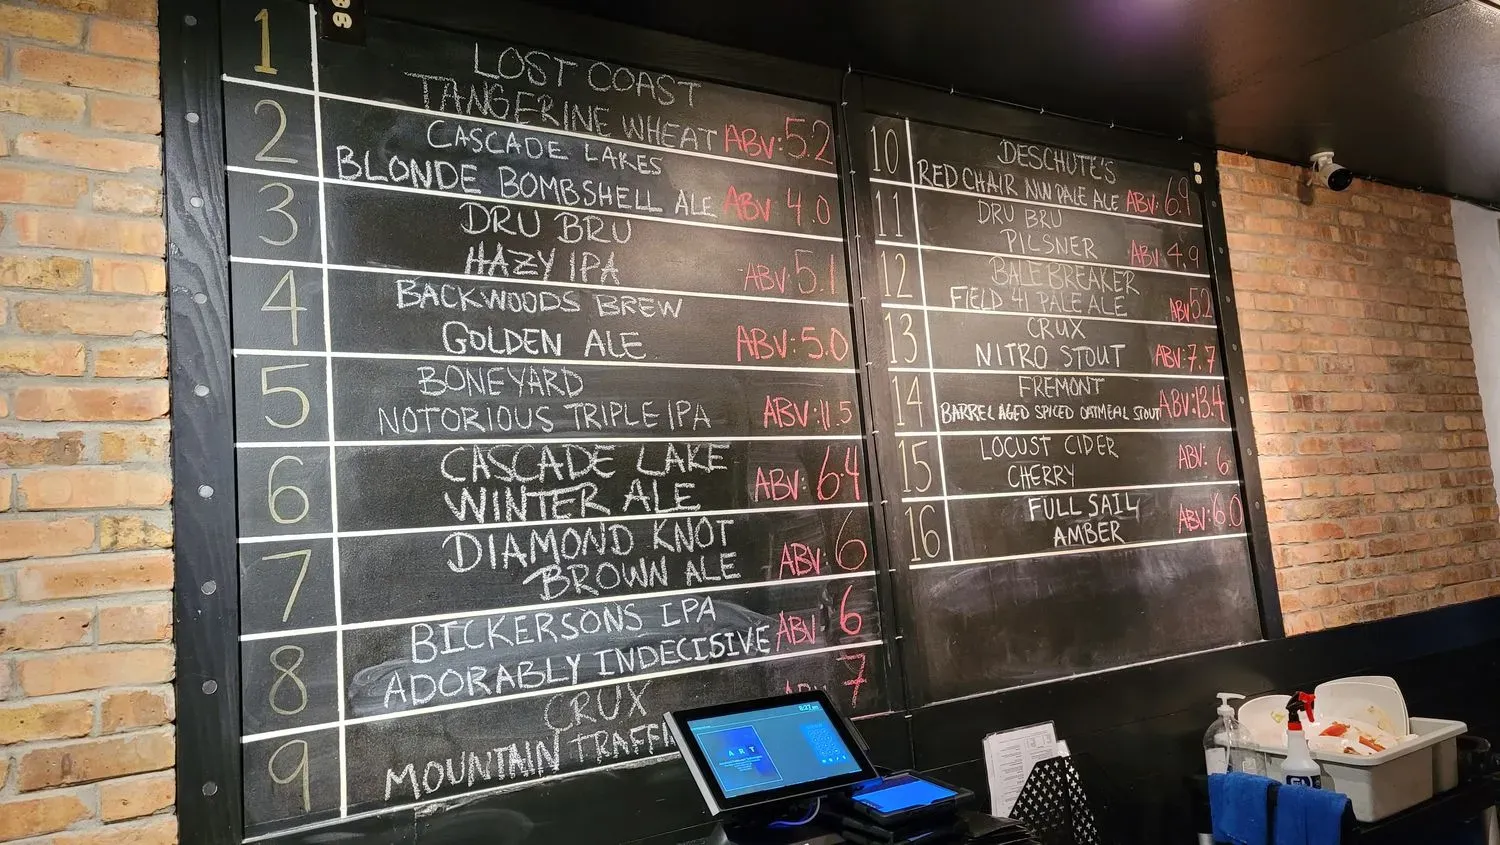 1
LOST COAST
TANGERINE WHEAT ABV: 5.2
2
CASCADE LAKES
BLONDE BOMBSHELL ALE ABV 4.0
3
DRU BRU
HAZY IPA ABV: 5.1
4
BACKWOODS BREW
GOLDEN ALE ABV: 5.0
5
BONEYARD
NOTORIOUS TRIPLE IPA ABV: 11.5
6
CASCADE LAKE
WINTER ALE ABV: 6.4
7
DIAMOND KNOT
BROWN ALE ABV: 6
8
BICKERSONS IPA
ADORABLY INDECISIVE ABV: 6
9
CRUX
MOUNTAIN TRAFFI 7
10
DESCHUTE'S
RED CHAIR NW PALE ALE ABV: 6.9
11
DRU BRU
PILSNER ABV: 4.9
12
BALE BREAKER
FIELD 41 PALE ALE ABV 5.2
13
CRUX
NITRO STOUT ABV: 7.7
14
FREMONT
BARREL AGED SPICED OATMEAL STOUT ABV: 13.4
15
LOCUST CIDER
CHERRY ABV: 6
16
FULL SAIL
AMBER ABV: 6.0
8:27
ART